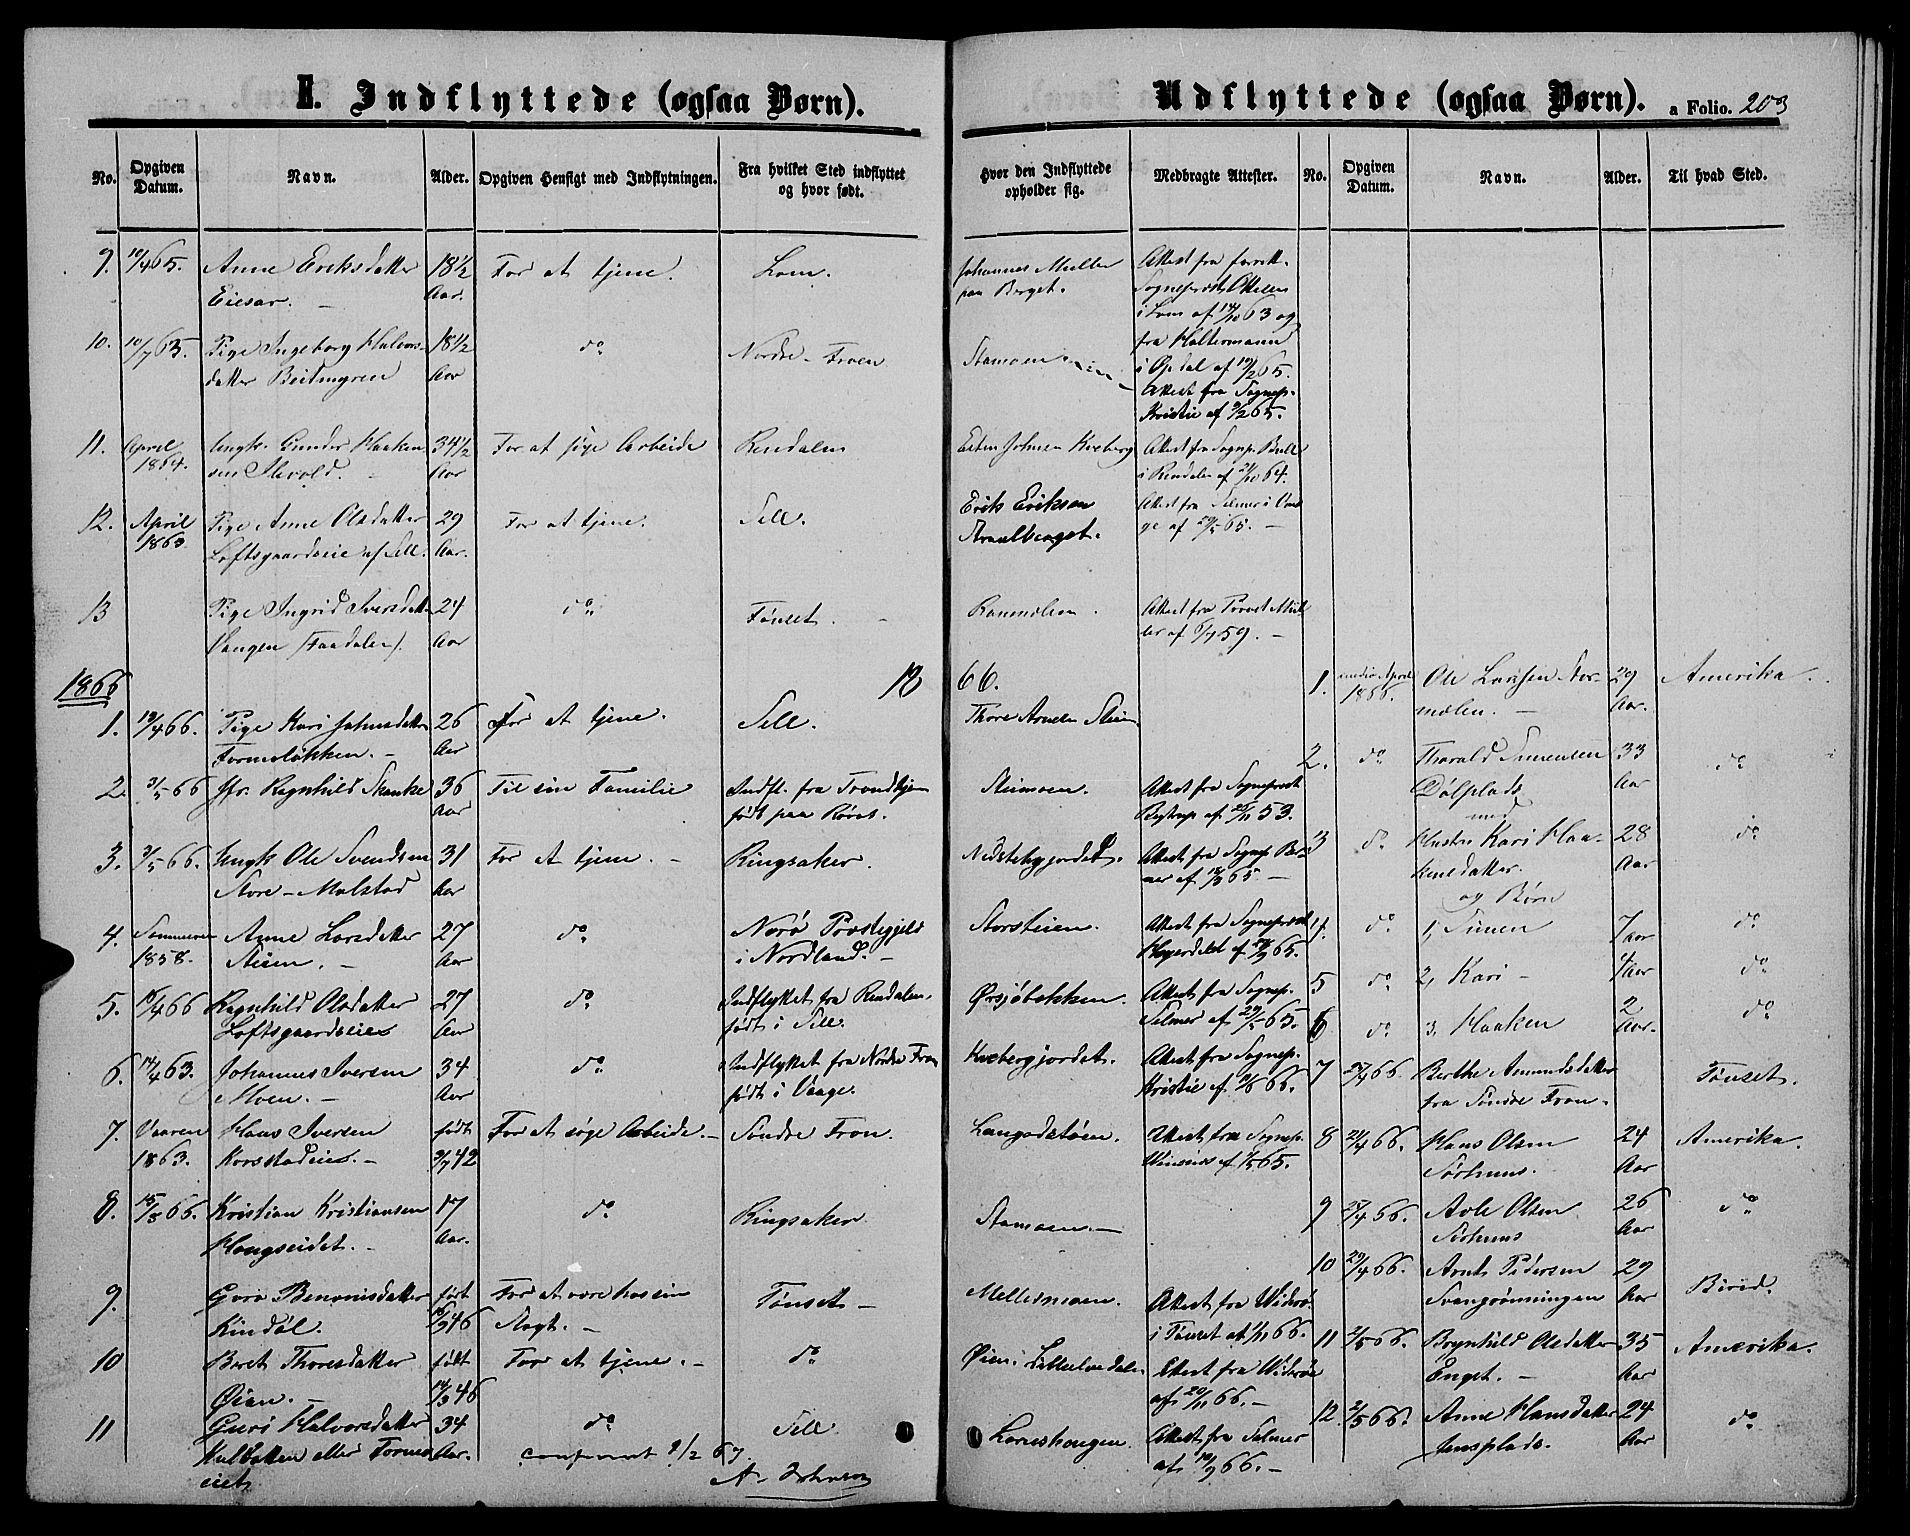 E. Indflyttede (ogsaa Børn).
No.
Opgiven Datum.
Navn.
Alder.
Opgiven Hensigt med Indflytningen.
Fra hvilket Sted indflyttet og hvor født.
9. 10/4 65. Anne Eriksdatter 18½ For at tjene. Lom.
Aar.
10. 10/7 63. Pige Ingeborg Halvors- 18½ do Nordre-Froen
datter Aar
11. April Ungk. Gunder Haaken 34½ For at søge Arbeide Rendalen
1864. sen Aar
12. April Pige Anne Olsdatter 29 For at tjene. Sell.
1863. Loftsgaardseie af Sell. Aar.
13 Pige Ingrid Iversdatter 24 do Tønset.
Vangen (Faadalen). Aar
1866 18
1. 19/4 66. Pige Kari Johnsdatter 26 For at tjene. Sell.
Formoløkken. Aar
2. 3/5 66 Jfr. Ragnhild Skanke 36 Til sin Familie Indfl. fra Trondhjem
Aar født paa Røros.
3. 3/5 66. Ungk. Ole Svendsen 31 For at tjene. Ringsaker.
Store-Malstad Aar
4. Sommeren Anne Larsdatter 27 do Nørø Præstegjeld
1858. Aar i Nordland.
5. 16/4 66 Ragnhild Olsdatter 27 do Indflyttet fra Rendalen,
Loftsgaardseie Aar født i Sell.
6. 14/4 63. Johannes Iversen 34 do Indflyttet fra Nordre Fron
Moen. Aar født i Vaage.
7. Vaaren Hans Iversen født For at søge Arbeide. Søndre Fron.
1863. Korsstadeie. 3/7 42
8. 15/8 66. Kristian Kristiansen 17 do Ringsaker.
Haugseidet. Aar.
9. Guro Benonisdatter født For at være hos sin Tønset
Kindøl. 16/9 46 Slægt.
10 Beret Thoresdatter født For at tjene. do
Øien. 14/3 46
11 Guro Halvorsdatter 34 do Sell
Kulbakken eller Formo Aar. conferert 9/2 67.
eiet

Udflyttede (ogsaa Børn). a Folio. 203
Hvor den Indflyttede opholder sig.
Medbragte Attester.
No.
Opgiven Datum.
Navn.
Alder.
Til hvad Sted.
Johannes Muller Attest fra forrett.
paa Berget. Sognepræst
i Lom af 14/10 63 og
fra Holtermann
Stamoen i Opdal af 19/2 65.
Attest fra Sognep.
Kristie af 9/2 65.
Esten Johnsen Kveberg Attest fra Sognep. Bull
i Rendalen af 21/10 64.
Erik Eriksen Attest fra Selmer i Vaa-
Straalberget. ge af 29/5 65.
Attest fra Provst Mül
ler af 6/7 59.
66.
1. medio April Ole Larsen Stor- 29 Amerika.
1866. mælen. Aar.
Thore Arnesen Steien
2. do Tharald Simensen 33 do
Dølplads Aar
med
Steimoen. Attest fra Sognepræst
af 25/11 53.
3 do Hustru Kari Haa- 28 do
kensdatter. Aar
og Børn
Nedstebyjordet. Attest fra Sognep.
af 18/3 65.
4. do 1, Simen 7 do
Aar
Storsteien. Attest fra Sognepræst
Heyerdahl af 28/9 65.
5 do 2, Kari 4 do
Aar
Ørsjøbakken. Attest fra Sognep.
Selmer af 29/5 65.
6 do 3, Haaken 2 do
Aar.
Kvebergjordet. Attest fra Sognep.
Kristie af 9/6 66.
7 27/4 66. Berthe Amundsdatter Tønset.
fra Søndre Fron.
Langodstøen. Attest fra Sognep.
Winsnes af 1/5 65.
8 21/4 66. Hans Olsen 24 Amerika.
Sørhuus. Aar
Stamoen.
9 21/4 66. Avle Olsen 26 do
Sørhuus Aar
10 29/4 66. Arnt Pedersen 29 Birid.
Svangrønningen Aar
Mellesmoen. Attest fra Widerø
i Tønset af 1/11 66.
11 2/5 66. Brynhild Olsdatter 35 Amerika.
Enget. Aar
Øien i Attest fra Widerøe
af 20/11 66.
12. 2/5 66. Anne Hansdatter 24 do
Jensplads. Aar
Lorushaugen. Attest fra Selmer
af 10/9 66.